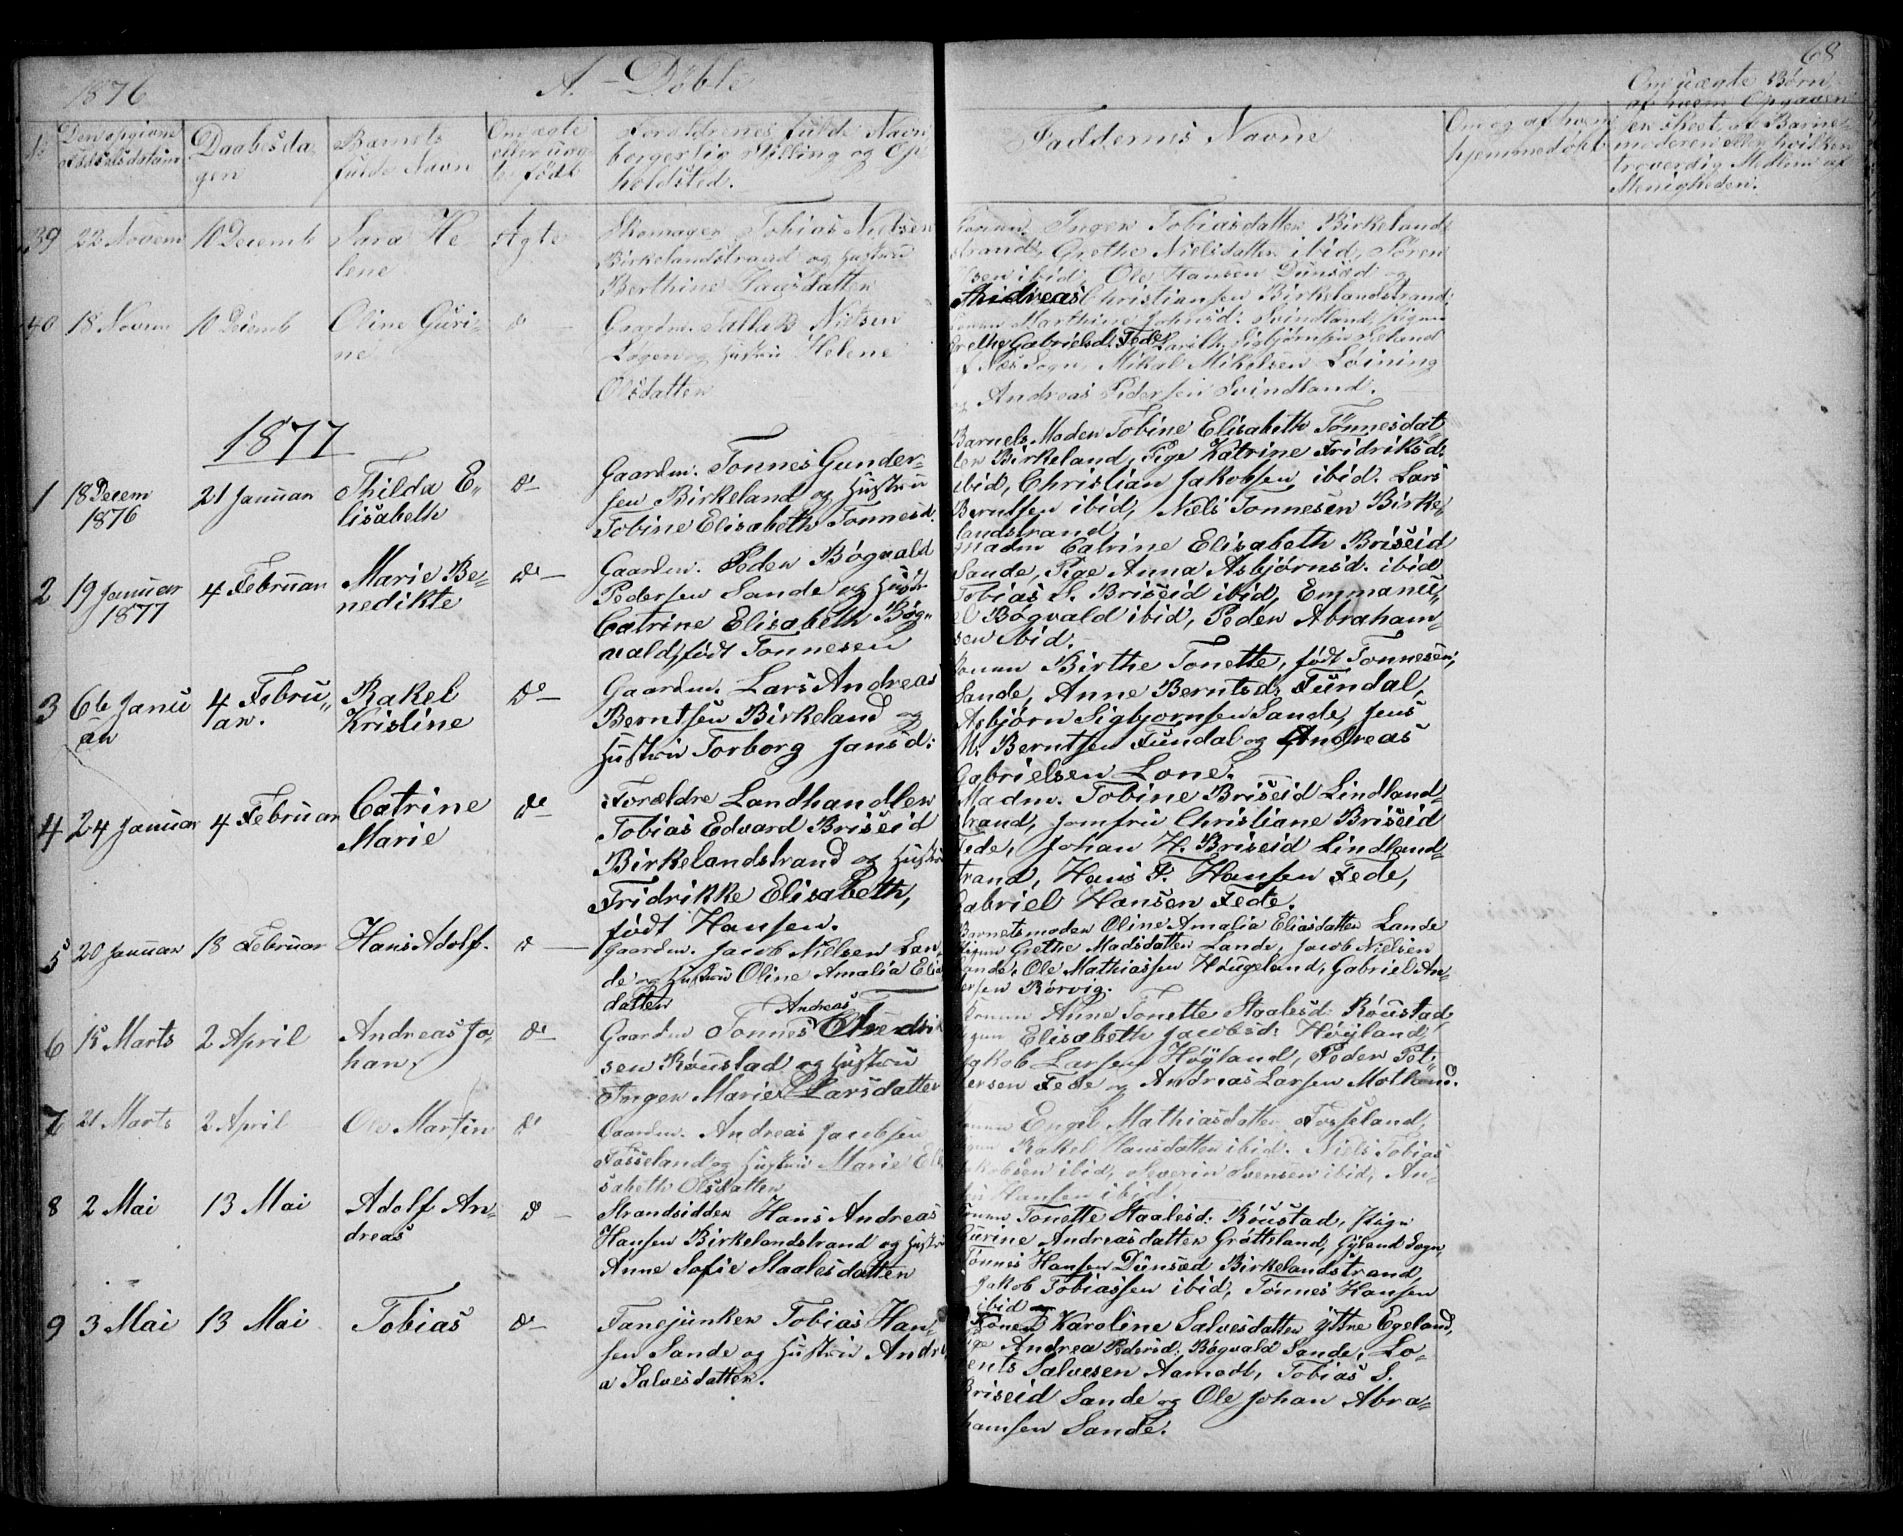 1876
A. Døbte
68
№
Den opgivne
Fødselsdatum
Daabesda-
gen
Barnets
fulde Navn
Om ægte
eller uæg-
te født
Forældrenes fulde Navn,
borgerlig Stilling og Op-
holdsted.
Faddernes Navne
Om og af hvem
hjemmedøbt
Om uægte Børn,
af hvem Opgaven
er skeet, af Barne-
moderen eller hvilken
troværdig Medlem af
Menigheden.
39
22 Novem
10 Decemb
Sara He
lene
Ægte
Skomager Tobias Nielsen
Birkelandstrand og Hustru
Berthine Hansdatter
Konen Inger Tobiasdatter Birkeland
strand, Grethe Nielsdatter ibid, Søren
Olsen ibid, Ole Hansen Dunsæd og
Andreas Christiansen Birkelandstrand.
40
18 Novem
10 Decemb
Oline Guri-
ne
do —
Gaardm. Tallak Nielsen
Løgen og Hustru Helene
Olsdatter
Konen Marthine Johnsd. Svindland, Pigen
Grethe Gabrielsd. Fede, Laurits Sigbjørnsen Sæland
af Næs Sogn, Mikal Mikelsen Løining
og Andreas Pedersen Svindland.
1877
1
18 Decem
1876
21 Januar
Thilda E-
lisabeth
do
Gaardm. Tønnes Gunder-
sen Birkeland og Hustru
Tobine Elisabeth Tonnesd.
Barnets Moder Tobine Elisabeth Tønnesdat
ter Birkeland, Pige Katrine Fridriksd.
ibid, Christian Jakobsen ibid. Lars
Berntsen ibid, Niels Tonnesen Birke-
landstrand
2
19 Januar
1877
4 Februar
Marie Be-
nedikte
do —
Gaardm. Peder Bøgvald
Pedersen Sande og Hustr
Catrine Elisabeth Bøg-
vald, født Tonnesen
Madm Catrine Elisabeth Briseid
Sande, Pige Anna Asbjørnsd. ibid
Tobias S. Briseid ibid, Emmanu-
el Bøgvald ibid, Peder Abraham-
sen ibid.
3
6te Janu
ar
4 Febru-
ar.
Rakel
Kristine
do —
Gaardm. Lars Andreas
Berntsen Birkeland og
Hustru Torborg Jansd:
Konen Birthe Tonette, født Tonnesen,
Sande, Anne Berntsd. Fundal,
Asbjørn Sigbjornsen Sande, Jens
M. Berntsen Fundal og Andreas
Gabrielsen Lone.
4
24 Januar
4 Februar
Catrine
Marie
do —
Forældre Landhandler
Tobias Edvard Briseid
Birkelandstrand og Hustru
Fridrikke Elisabeth,
født Hansen.
Madm. Tobine Briseid Lindland-
strand, Jomfru Christiane Briseid
Fede, Johan H. Briseid Lindland-
strand, Hans P. Hansen Fede,
Gabriel Hansen Fede.
5
20 Januar
18 Februar
Hans Adolf.
do —
Gaardm. Jacob Nielsen Lan-
de og Hustru Oline Amalia Elias
datter
Barnetsmoder Oline Amalia Eliasdatter Lande
Pigen Grethe Madsdatter Lande, Jacob Nielsen
Lande, Ole Mathiassen Hougeland, Gabriel An-
dersen Rørvig.
6
15 Marts
2 April
Andreas Jo-
han
do —
Andreas
Gaardm Tonnes
sen Røustad og Hustru
Inger Marie Larsdatter
Konen Anne Tonette Staalesd. Røustad
Pigen Elisabeth Jacobsd. Høyland,
Jakob Larsen Høyland, Peder Pet-
tersen Fede og Andreas Larsen Motland.
7
21 Marts
2 April
Ole Martin
do —
Gaardm. Andreas Jacobsen
Fosseland og Hustru Marie Eli
sabeth Olsdatter
Konen Engel Mathiasdatter Fosseland,
Pigen Rakel Hansdatter ibid. Niels Tobias
Jakobsen ibid, Severin Svensen ibid, An-
Hansen ibid.
8
2 Mai
13 Mai
Adolf An-
dreas
do —
Strandsidder Hans Andreas
Hansen Birkelandstrand og Hustru
Anne Sofie Staalesdatter
Konen Tonette Staalesd. Røustad, Pigen
Gurine Andreasdatter Grøttsland, Gyland Sogn
Tønnes Hansen Dunsæd Birkelandstrand,
Jakob Tobiassen ibid, Tønnes Hansen
ibid
9
3 Mai
13 Mai
Tobias
do —
Fanejunker Tobias Han-
sen Sande og Hustru Andre
a Salvesdatter.
Konen Karoline Salvesdatter yttre Egeland,
Pige Andrea Pedersd. Bøgvald Sande, Lo-
rents Salvesen Aamodt, Tobias S.
Briseid Sande og Ole Johan Abra-
hamsen Sande.